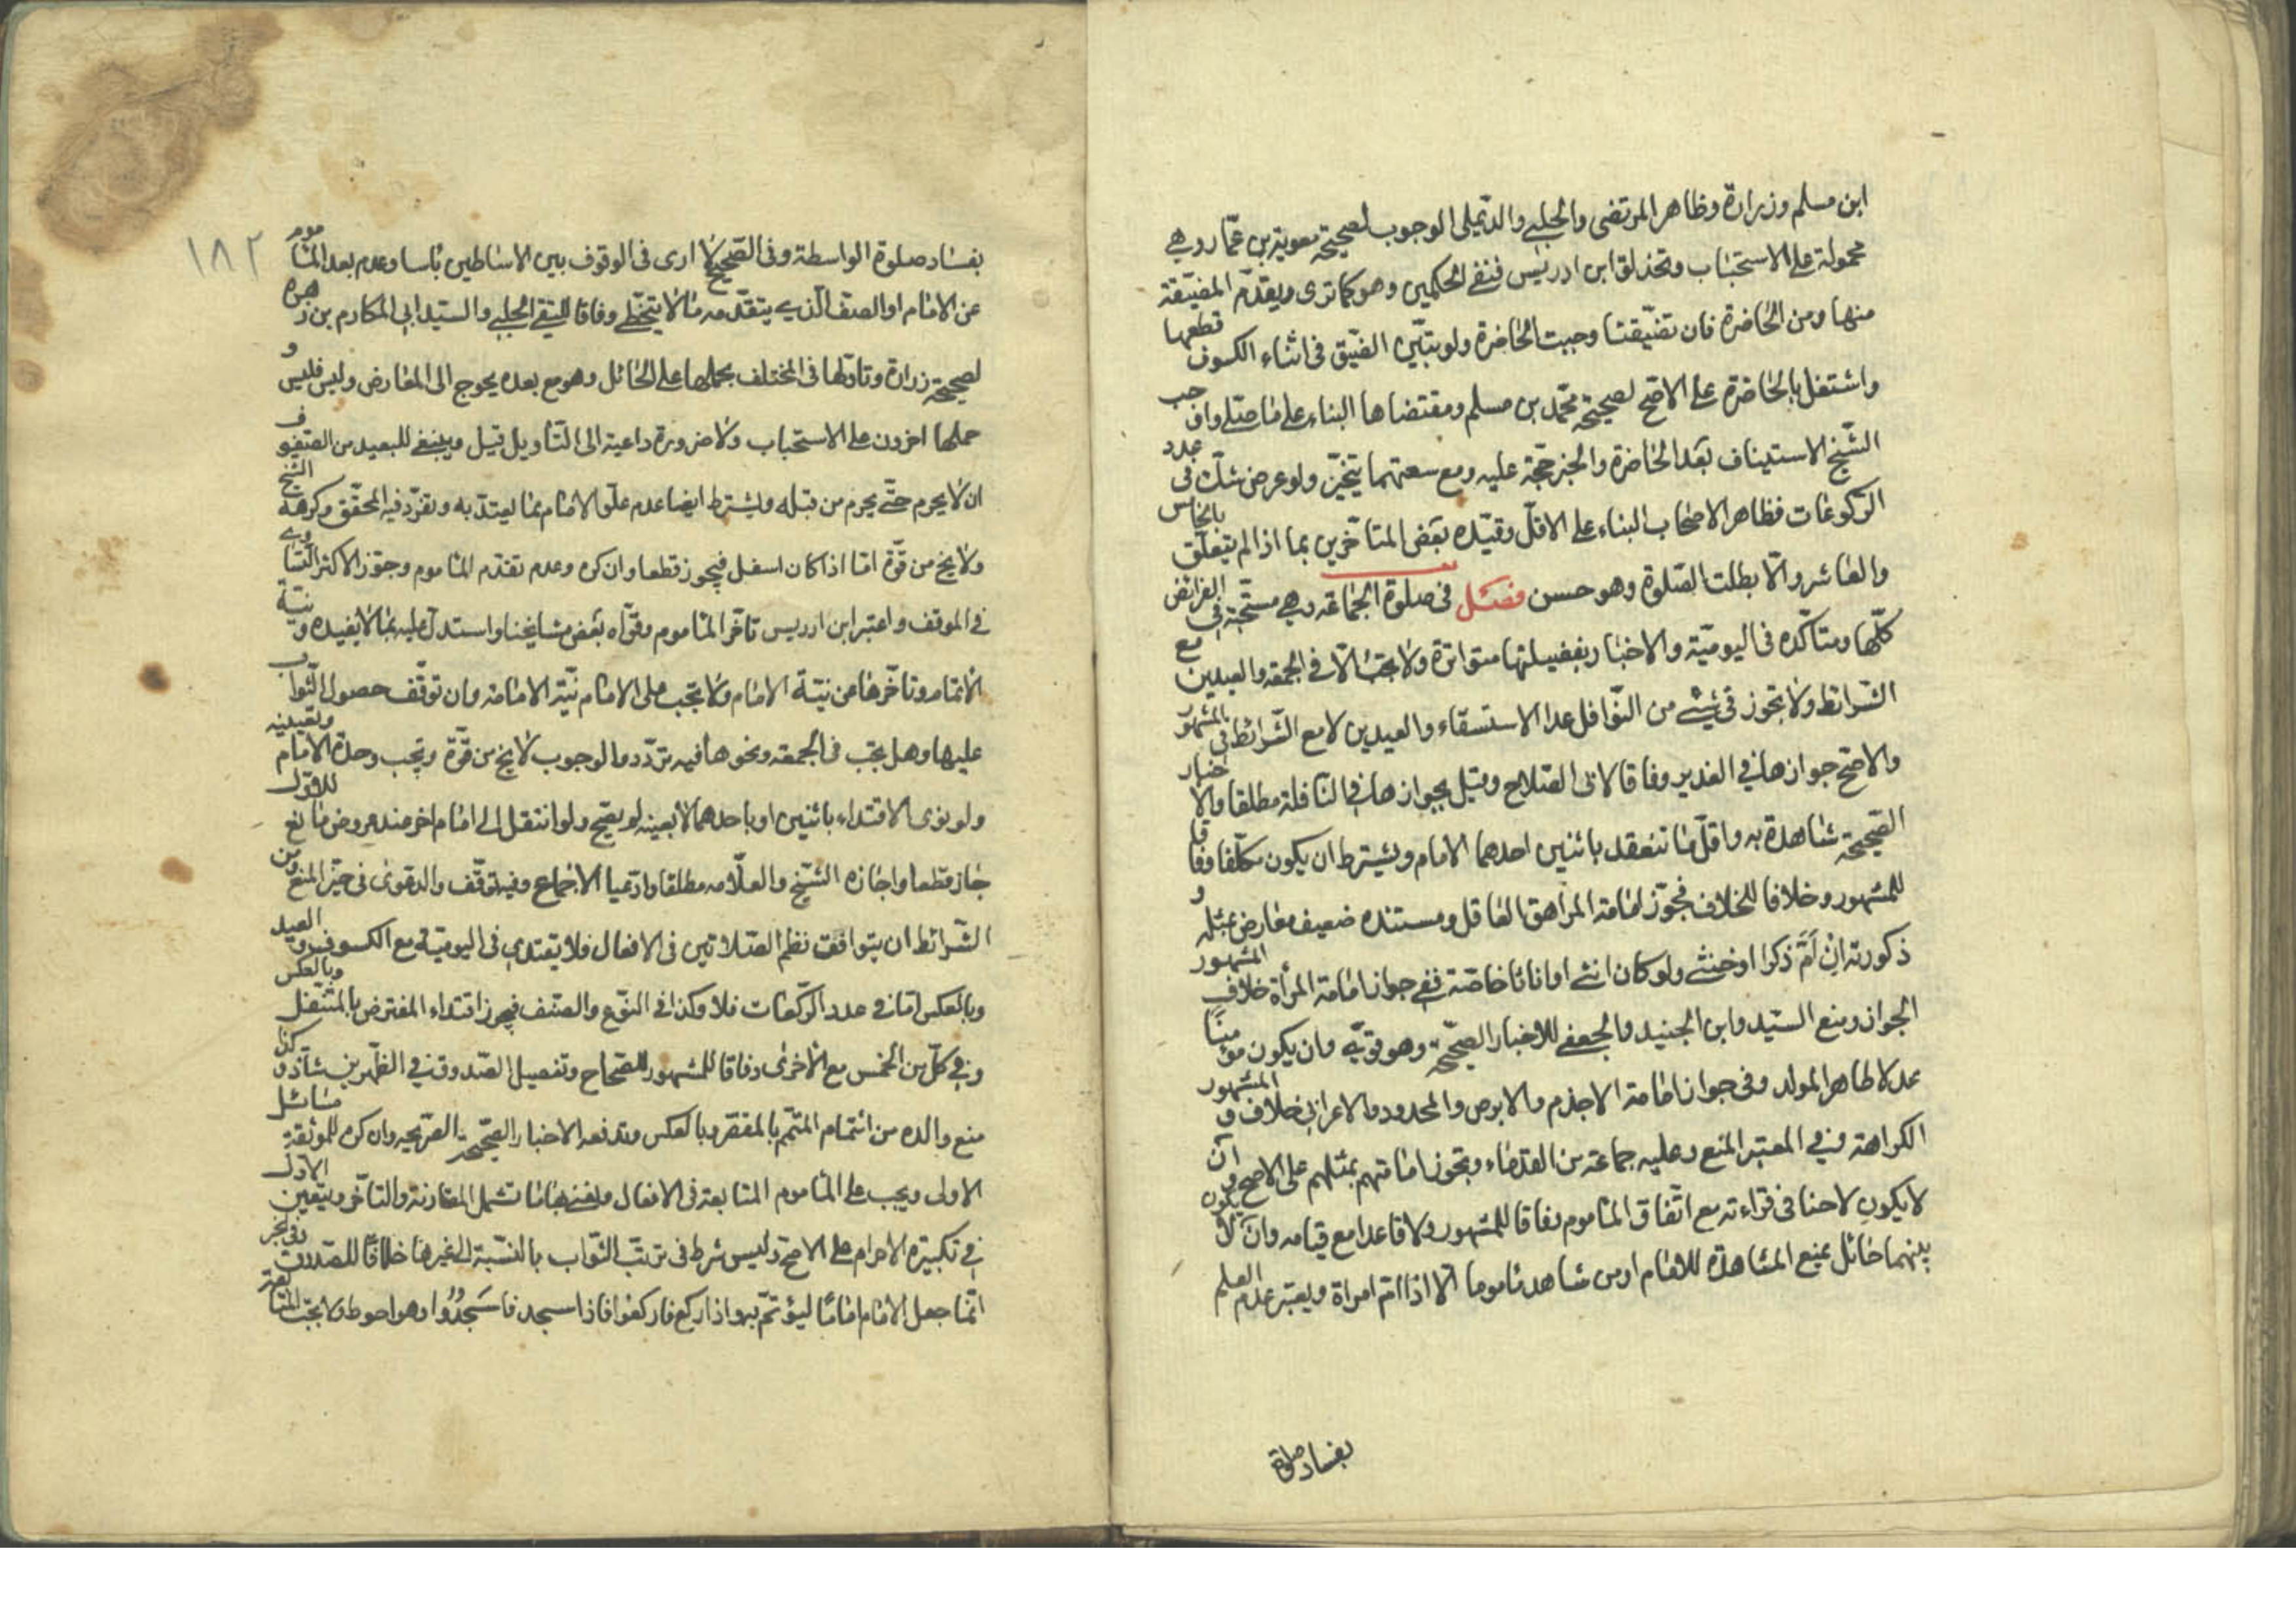 ابن مسلم وزرارة وظاهر المرتضى والحلبي والديلمي الوجوب لصحيحة معوية بن عمار وهي
محمولة على الاستحباب وتحذلق ابن ادريس فنفى الحكمين وهو كما ترى ويقدم المضيقة
منها ومن الحاضرة فان تضيقتا وجبت الحاضرة ولو تبين الضيق في اثناء الكسوف قطعها
واشتغل بالحاضرة على الاصح لصحيحة محمد بن مسلم ومقتضاها البناء على ما صلى واوجب
الشيخ الاستيناف بعد الحاضرة والخبر حجة عليه ومع سعتهما يتخير ولو عرض شك في عدد
الركوعات فظاهر الاصحاب البناء على الاقل وقيده بعض المتأخرين بما اذا لم يتعلق بالخامس
والعاشر والا بطلت الصلوة وهو حسن فصل في صلوة الجماعة وهي مستحبة في الفرائض
كلها ومتأكده في اليومية والاخبار بفضيلتها متواترة ولا تجب الا في الجمعة والعيدين مع
الشرائط ولا تجوز في شيء من النوافل عدا الاستسقاء والعيدين لا مع الشرائط في المشهور
والاصح جوازها في الغدير وفاقا لابي الصلاح وقيل بجوازها في النافلة مطلقا والاخبار
الصحيحة شاهدة به واقل ما تنعقد باثنين احدهما الامام ويشترط ان يكون مكلفا وفاقا
للمشهور وخلافا للخلاف فجوز امامة المراهق العاقل ومستنده ضعيف معارض بمثله و
ذكورته ان أم ذكرا او خنثى ولو كان انثى او اناثا خاصة ففي جواز امامة المرأة خلاف المشهور
الجواز ومنع السيد وابن الجنيد والجعفي للاخبار الصحيحة وهو قوي وان يكون مؤمنا
عدلا طاهر المولد وفي جواز امامة الاجذم والابرص والمحدود والاعرابي خلاف و المشهور
الكراهة وفي المعتبر المنع وعليه جماعة من القدماء وتجوز امامتهم بمثلهم على الاصح و ان
لا يكون لاحنا في قراءته مع اتفاق المأموم وفاقا للمشهور ولا قاعدا مع قيامه وان لا يكون
بينهما حائل يمنع المشاهدة للامام او من شاهد مأموما الا اذا ام امراة ويعتبر عدم العلم
بفساد صلوة
١٨٢
بفساد صلوة الواسطة وفي الصحيح لا ارى في الوقوف بين الاساطين بأسا وعدم بعد المأموم
عن الامام او الصف الذي يتقدمه ما لا يتخطى وفاقا للتقي الحلبي والسيد ابي المكارم بن زهرة
لصحيحة زرارة وتأولها في المختلف بحملها على الحائل وهو مع بعده يحوج الى المعارض وليس فليس و
حملها اخرون على الاستحباب ولا ضرورة داعية الى التأويل قيل وينبغي للبعيد من الصفوف
ان لا يحرم حتى يحرم من قبله ويشترط ايضا عدم علو الامام بما يعتد به وتفرد فيه المحقق وكرهه الشيخ
ولا يخ من قوة اما اذا كان اسفل فيجوز قطعا وان كره وعدم تقدم المأموم وجوز الاكثر التساوي
في الموقف واعتبر ابن ادريس تأخر المأموم وقواه بعض مشايخنا واستدل عليه بما لا يفيده و نية
الائتمام وتأخرها عن نية الامام ولا تجب على الامام نية الامامة وان توقف حصول الثواب
عليها وهل تجب في الجمعة ونحوها فيه تردد والوجوب لا يخ من قوة وتجب وحدة الامام وتعيينه
ولو نوى الاقتداء باثنين او باحدهما لا بعينه لم يصح ولو انتقل الى امام اخر عند عروض مانع للاول
جاز قطعا واجازه الشيخ والعلامة مطلقا وادعيا الاجماع وفيه توقف والدعوى في حيز المنع ومن
الشرائط ان يتوافق نظم الصلاتين في الافعال فلا يقتدي في اليومية مع الكسوف و العيد
وبالعكس اما في عدد الركعات فلا وكذا في النوع والصنف فيجوز اقتداء المفترض بالمتنفل وبالعكس
وفي كل من الخمس مع الاخرى وفاقا للمشهور للصحاح وتفصيل الصدوق في الظهرين شاذ و كذا
منع والده من ائتمام المتمم بالمقصر وبالعكس وتدفعه الاخبار الصحيحة الصريحة وان كره للموثقة مسائل
الاولى ويجب على المأموم المتابعة في الافعال ونعني بها ما تشمل المقارنة والتأخر ويتعين الاول
في تكبيرة الاحرام على الاصح وليس شرط في ترتب الثواب بالنسبة الى غيرها خلافا للصدوق وفي الخبر
انما جعل الامام اماما ليؤتم به واذا ركع فاركعوا فاذا سجد فاسجدوا وهو احوط ولا تجب المتابعة